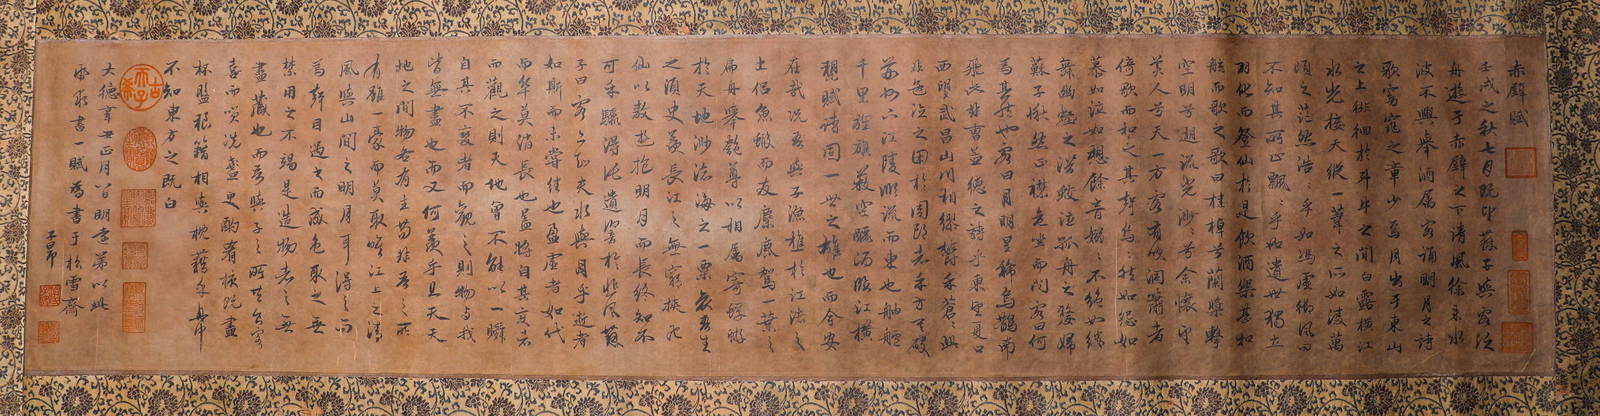 赤壁賦
壬戌之秋七月既望蘇子與客泛
舟遊于赤壁之下清風徐來水
波不興舉酒屬客誦明月之詩
歌窈窕之章少焉月出于東山
之上徘徊於斗牛之間白露橫江
水光接天縱一葦之所如凌萬
頃之茫然浩浩乎如馮虛御風而
不知其所止飄飄乎如遺世獨立
羽化而登仙於是飲酒樂甚扣
舷而歌之歌曰桂棹兮蘭槳擊
空明兮遡流光渺渺兮余懷望
美人兮天一方客有吹洞簫者
倚歌而和之其聲嗚嗚然如怨如
慕如泣如愬餘音嫋嫋不絕如縷
舞幽壑之潛蛟泣孤舟之嫠婦
蘇子愀然正襟危坐而問客曰何
為其然也客曰月明星稀烏鵲南
飛此非曹孟德之詩乎東望夏口
西望武昌山川相繆鬱乎蒼蒼此
非孟德之困於周郎者乎方其破
荊州下江陵順流而東也舳艫
千里旌旗蔽空釃酒臨江橫
槊賦詩固一世之雄也而今安
在哉況吾與子漁樵於江渚之
上侶魚蝦而友麋鹿駕一葉之
扁舟舉匏尊以相屬寄蜉蝣
於天地渺滄海之一粟哀吾生
之須臾羨長江之無窮挾飛
仙以遨遊抱明月而長終知不
可乎驟得託遺響於悲風蘇
子曰客亦知夫水與月乎逝者
如斯而未嘗往也盈虛者如代
而卒莫消長也蓋將自其變者
而觀之則天地曾不能以一瞬
自其不變者而觀之則物與我
皆無盡也而又何羨乎且夫天
地之間物各有主苟非吾之所
有雖一毫而莫取惟江上之清
風與山間之明月耳得之而
為聲目遇之而成色取之無
禁用之不竭是造物者之無
盡藏也而吾與子之所共食客
喜而笑洗盞更酌肴核既盡
杯盤狼籍相與枕藉乎舟中
不知東方之既白
大德辛丑正月八日明遠弟以此
求書一賦為書于松雪齋
子昂
古希天子